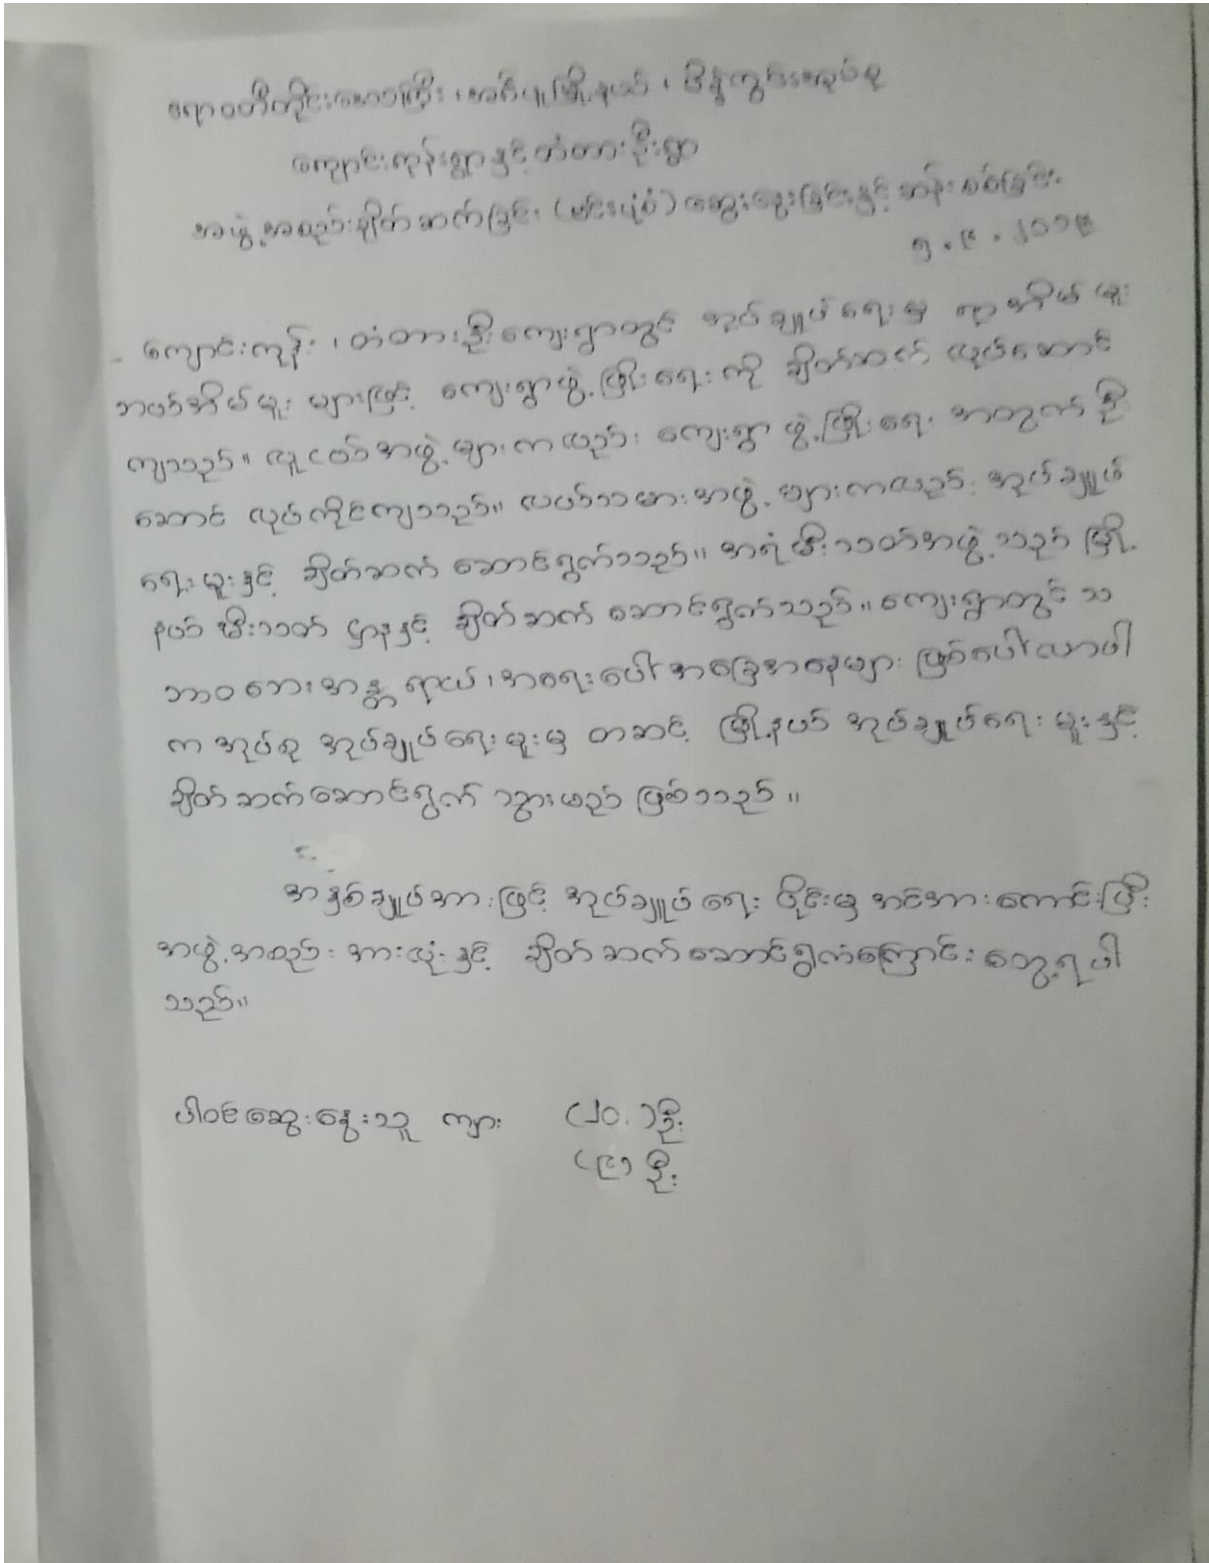 ဧရာဝတီတိုင်းဒေသကြီး ၊ အင်္ဂပူမြို့နယ် ၊ အုပ်စု
ကျောင်းကုန်းရွာနှင့် တံတားဦးရွာ
အဖွဲ့အစည်းချိတ်ဆက်ခြင်း (ပုံစံ) ဆွေးနွေးခြင်းနှင့် ဆန်းစစ်ခြင်း
၅.၉.၂၀၁၉
- ကျောင်းကုန်း ၊ တံတားဦးကျေးရွာတွင် အုပ်ချုပ်ရေးမှု ရာအိမ်မှူး
ဘယ်အိမ်မှူး များဖြင့် ကျေးရွာဖွံ့ဖြိုးရေးကို ချိတ်ဆက် လုပ်ဆောင်
ကျသည်။ လူငယ်အဖွဲ့များကလည်း ကျေးရွာ ဖွံ့ဖြိုးရေး အတွက် ဦး
ဆောင် လုပ်ကိုင်ကျသည်။ လယ်သမားအဖွဲ့များကလည်း အုပ်ချူပ်
ရေးမှူးနှင့် ချိတ်ဆက် ဆောင်ရွက်သည်။ အရံမီးသတ်အဖွဲ့သည် မြို့
နယ် မီးသတ် ဌာနနှင့် ချိတ်ဆက် ဆောင်ရွက်သည်။ ကျေးရွာတွင် သ
ဘာဝဘေးအန္တရာယ် ၊ အရေးပေါ် အခြေအနေများ ဖြစ်ပေါ်လာပါ
က အုပ်စု အုပ်ချုပ်ရေးမှူးမှ တဆင့် မြို့နယ် အုပ်ချူပ်ရေးမှူးနှင့်
ချိတ်ဆက်ဆောင်ရွက် သွားမည် ဖြစ်သည် ။
အနှစ်ချုပ်အားဖြင့် အုပ်ချူပ်ရေး ပိုင်းမှ အင်အားကောင်းပြီး
အဖွဲ့အစည်း အားလုံးနှင့် ချိတ်ဆက်ဆောင်ရွက်ကြောင်း တွေ့ရပါ
သည်။
ပါဝင်ဆွေးနွေးသူ ကျား (၂၀.)ဦး
(၉) ဦး